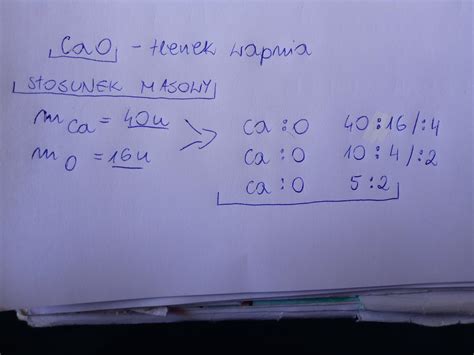 CaO - tlenek wapnia
STOSUNEK MASOWY
m Ca = 40u
m O = 16u
Ca : O 40 : 16 /: 4
Ca : O 10 : 4 /: 2
Ca : O 5 : 2